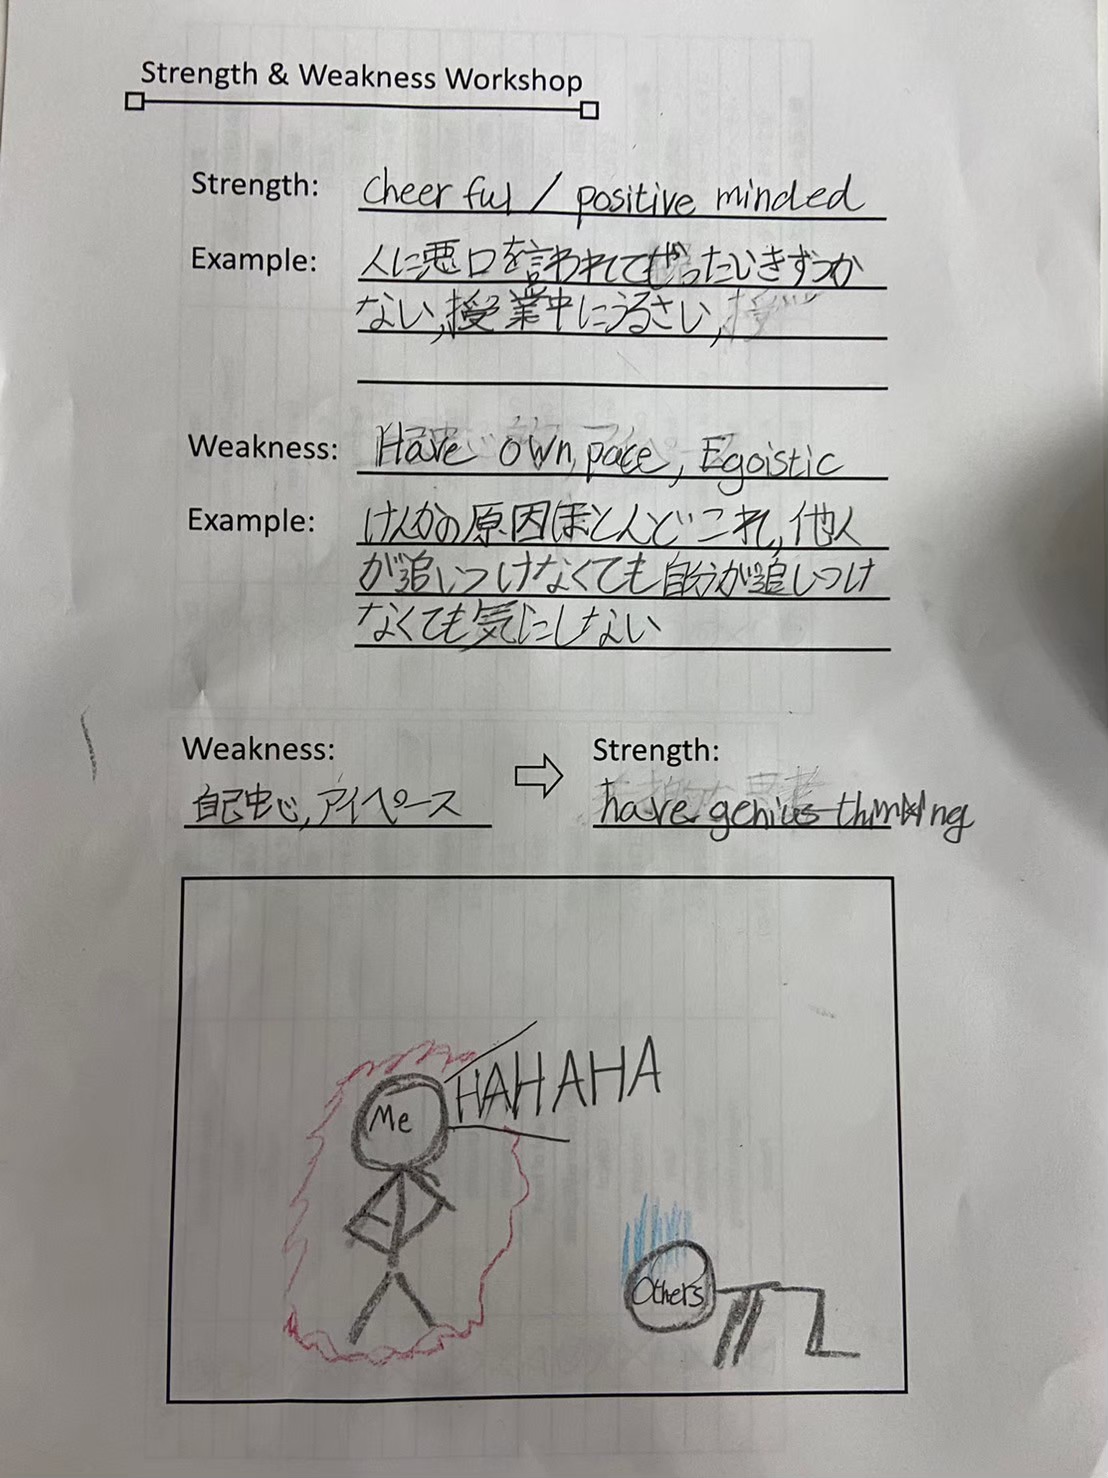 Strength & Weakness Workshop
Strength: cheerful / positive minded
Example: 人に悪口を言われてぜったいきずつか
ない,授業中にうるさい,
Weakness: Have own pace, Egoistic
Example: けんかの原因ほとんどこれ,他人
が追いつけなくても自分が追いつけ
なくても気にしない
Weakness: Strength:
自己中心,アイペース have genius thinking
Me HAHAHA
Others